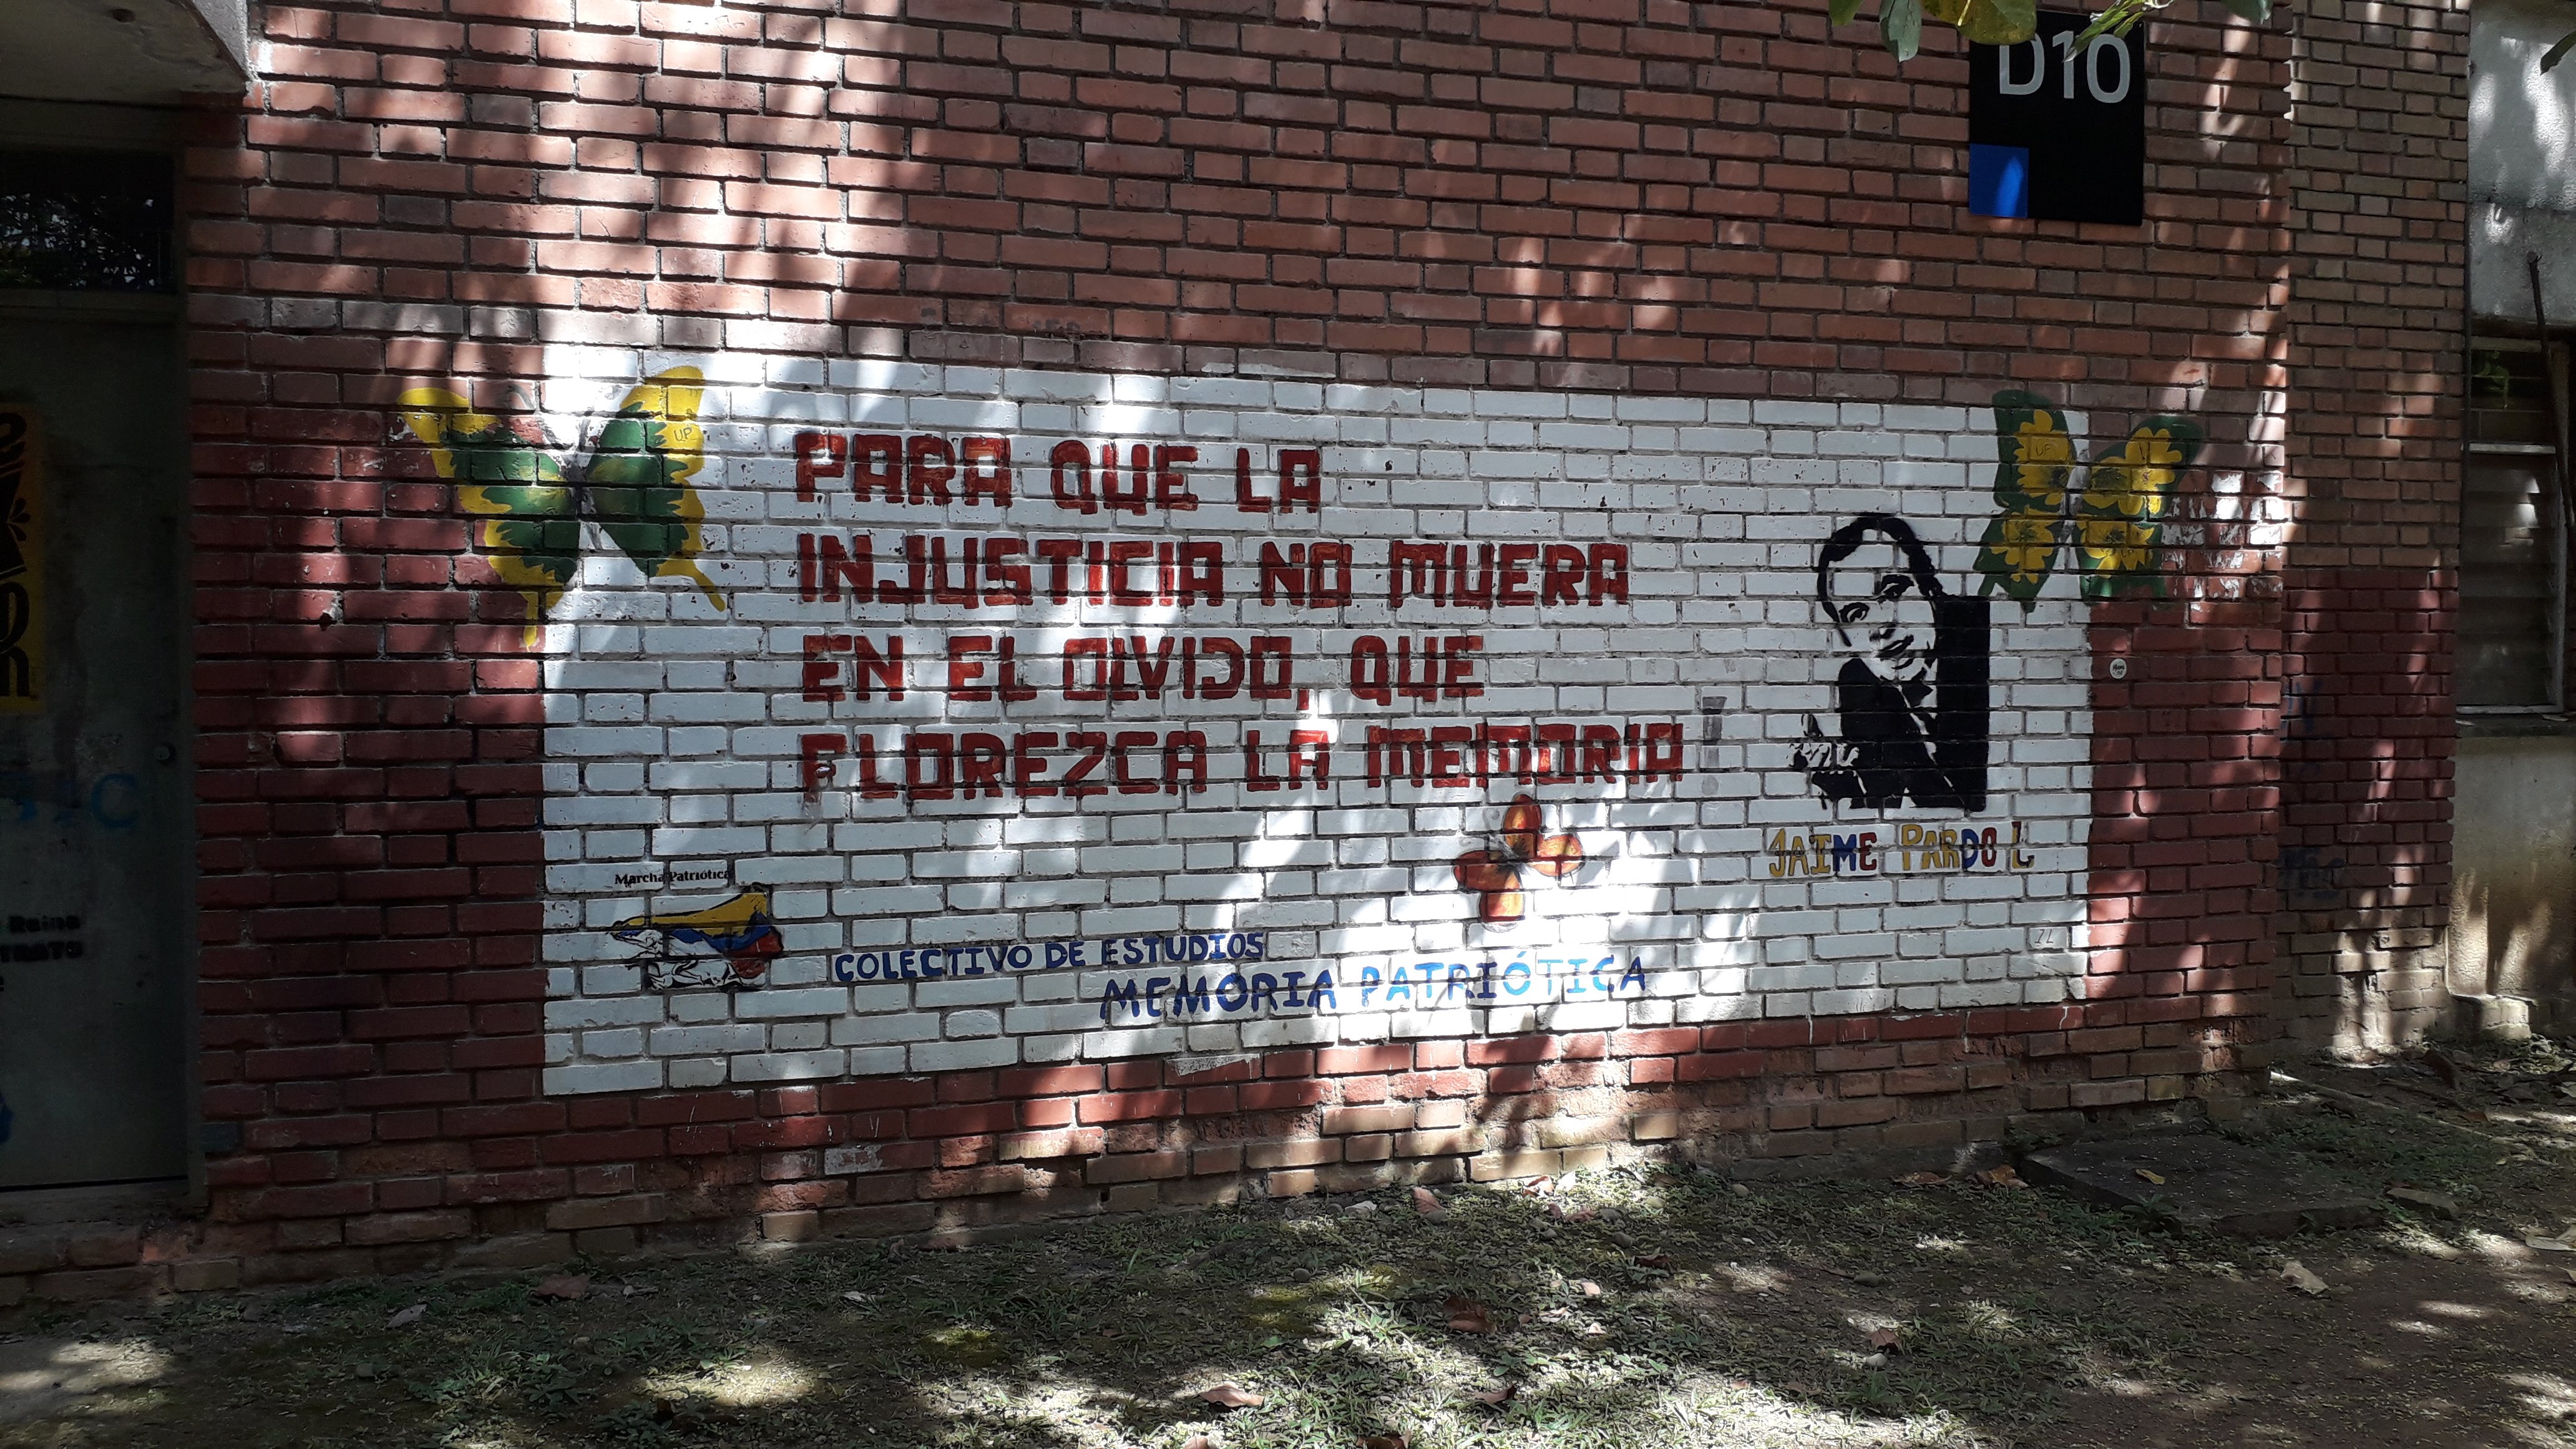 D10
U.P
U.P
PARA QUE LA
INJUSTICIA NO MUERA
EN EL OLVIDO, QUE
FLOREZCA LA MEMORIA
JAIME PARDO L
Marcha Patriótica
COLECTIVO DE ESTUDIOS
MEMORIA PATRIÓTICA
Reina